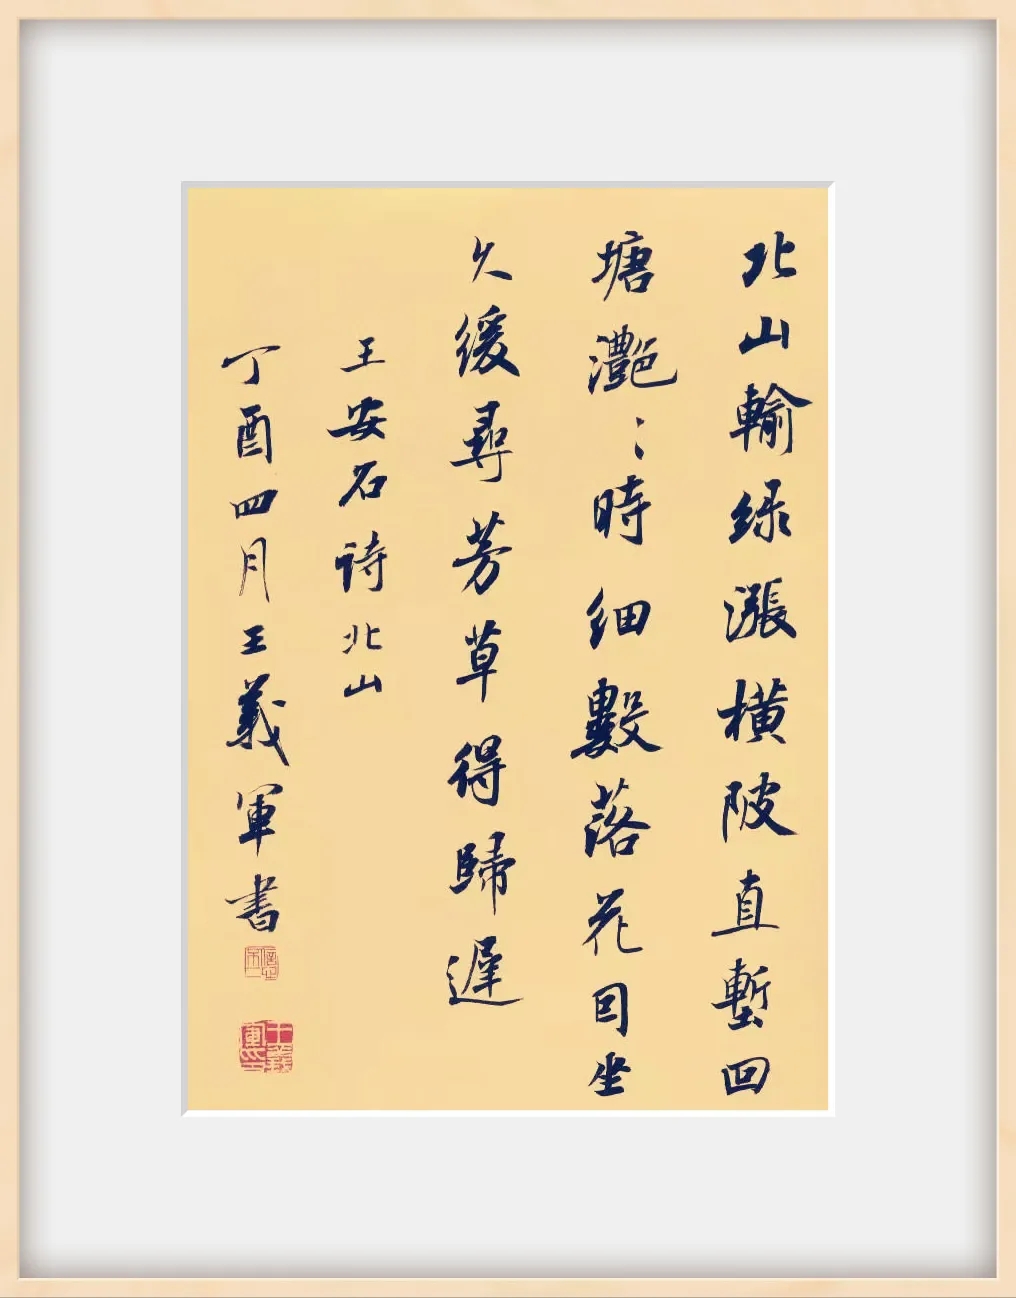 北山輸緑漲橫陂直塹回
塘灧〻時細數落花因坐
久緩尋芳草得歸遲
王安石诗北山
丁酉四月王義軍書